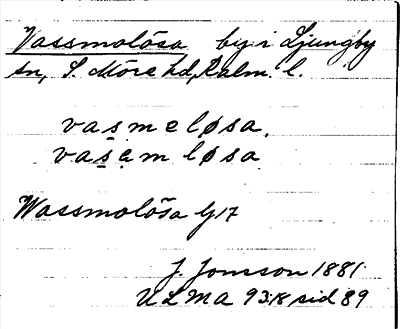 Vassmolösa by i Ljungby
sn, S. Möre hd, Kalm. l.
vas̱meløsa,
vas̱ạm løsa
Wassmolösa G17
J. Jonsson 1881
ULMA 93:18 sid 89